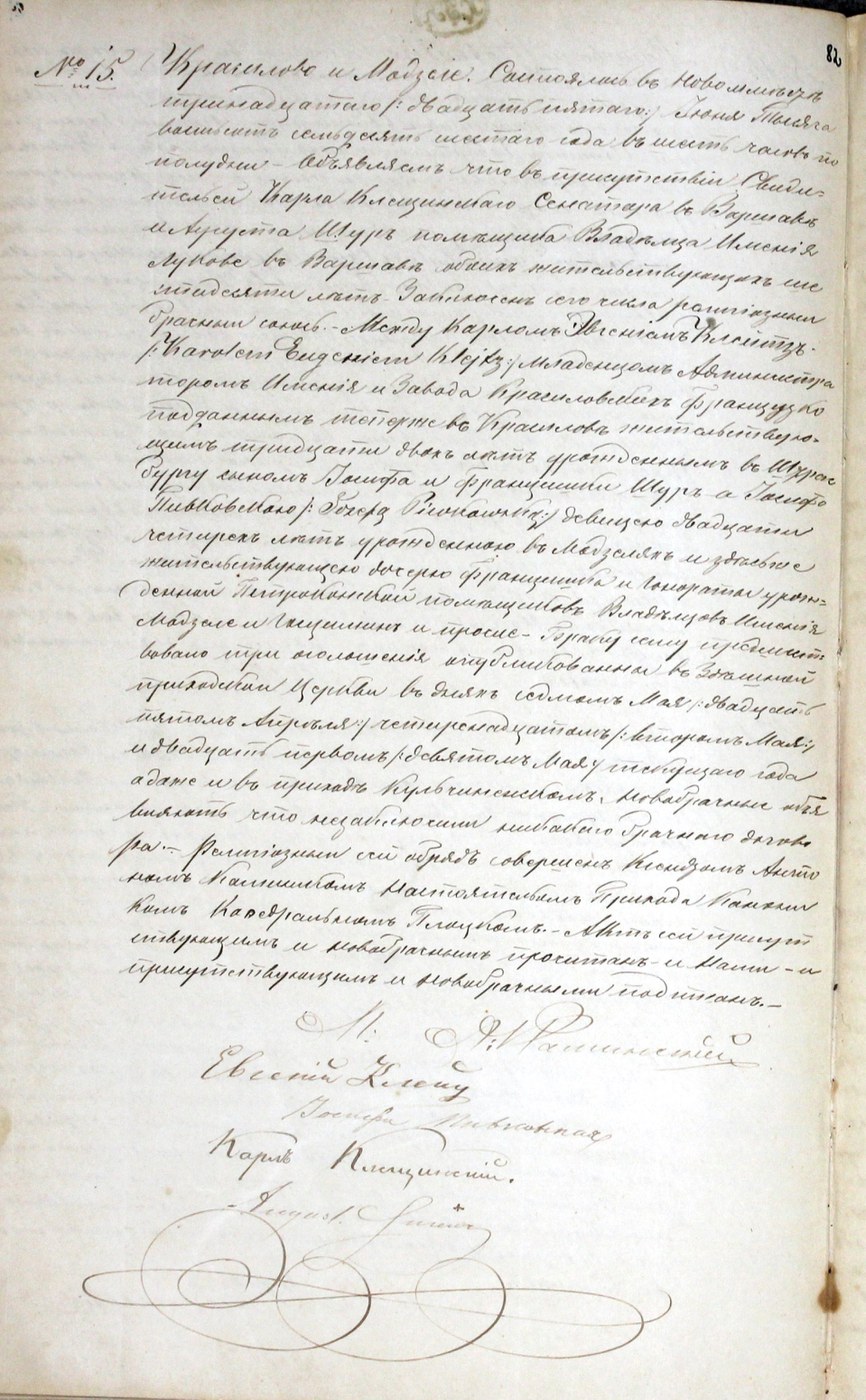 82
№ 15. Красилово и Модзеле. Состоялось въ Новомлѣстѣ
тринадцатаго /: двадцать пятаго :/ Іюня Тысяча
восемьсотъ семьдесятъ шестаго года въ шесть часовъ по
полудни - Объявляемъ что въ присутствіи Свиде=
тельей Карла Клещинскаго Сенатора въ Варшавѣ
и Августа Шуръ помѣщика Владѣльца Имѣнія
Луково въ Варшавѣ обоихъ жительствующихъ ше
стидесяти лѣтъ - Заключенъ сего числа религіозный
брачный союзъ. - Между Карломъ Эвгеніемъ Клейтзъ -
/: Karolem Eugeniem Klejtz :/ младенцомъ Администра
торомъ Имѣнія и Завода Красиловскихъ Французко
подданнымъ теперже въ Красиловѣ жительствую=
щимъ тридцати двохъ лѣтъ урожденнымъ въ Штрас
бургу сыномъ Іосифа и Францишки Шуръ - а Іосифо
Пивковскою /: Józefą Piwkowską :/ девицею двадцати
четырехъ лѣтъ урожденною въ Модзеляхъ и здѣсьже
жительствующею дочерью Францишка и Гонораты урож=
денной Петриконской помѣщиковъ Владѣльцовъ Имѣнія
Модзеле и и проче - Браку сему предшест=
вовало три оголошенія опубликованны въ Здѣшной
приходской Церкви въ дняхъ седмомъ Мая /: двадцать
пятомъ Апрѣля :/ четырнадцатомъ /: второмъ Мая :/
и двадцать первомъ /: девятомъ Мая :/ текущаго года
а даже и въ приходѣ Кульчинскомъ. Новобрачные объя
вляютъ что незаключили никакаго брачнаго догово
ра. - Религіозный сей обрядъ совершенъ Ксендзомъ Анто
номъ Настоятельомъ Прихода Канони
комъ Кафедральномъ Плоцкомъ. - Актъ сей присут
ствующимъ и новобрачнымъ прочитанъ - и Нами - и
присутствующимъ и новобрачными подписанъ. -
Евгеній Клейц
Іосифа Пивковская
Карлъ Клещинскій.
August